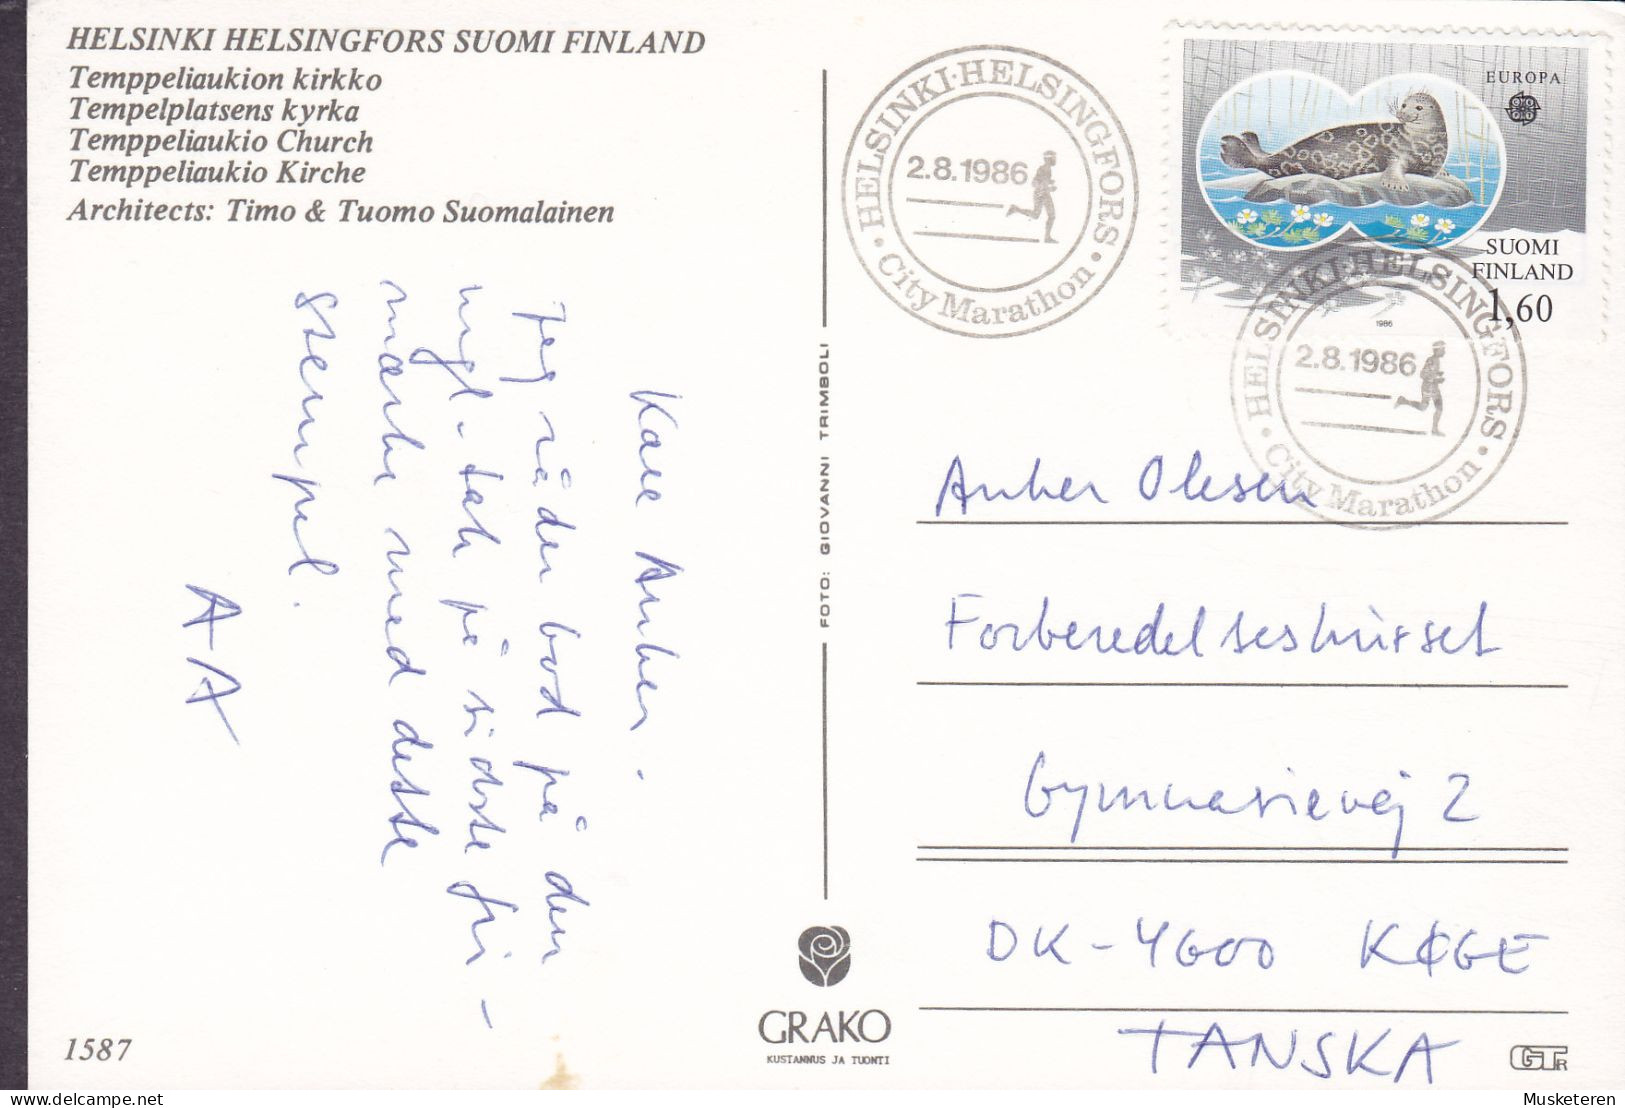 HELSINKI HELSINGFORS SUOMI FINLAND
Temppeliaukion kirkko
Tempelplatsens kyrka
Temppeliaukio Church
Temppeliaukio Kirche
Architects: Timo & Tuomo Suomalainen
Kære Anker.
Jeg råder bod på den
mgl. tak på sidste fri-
mærke med dette
stempel.
AA
1587
FOTO: GIOVANNI TRIMBOLI
GRAKO
KUSTANNUS JA TUONTI
HELSINKI·HELSINGFORS
2.8.1986
City Marathon
EUROPA
SUOMI
FINLAND
1,60
1986
HELSINKI·HELSINGFORS
2.8.1986
City Marathon
Anker Olesen
Forberedelseskurset
Gymnasievej 2
DK-4600 KØGE
TANSKA
GTR
Musketeren